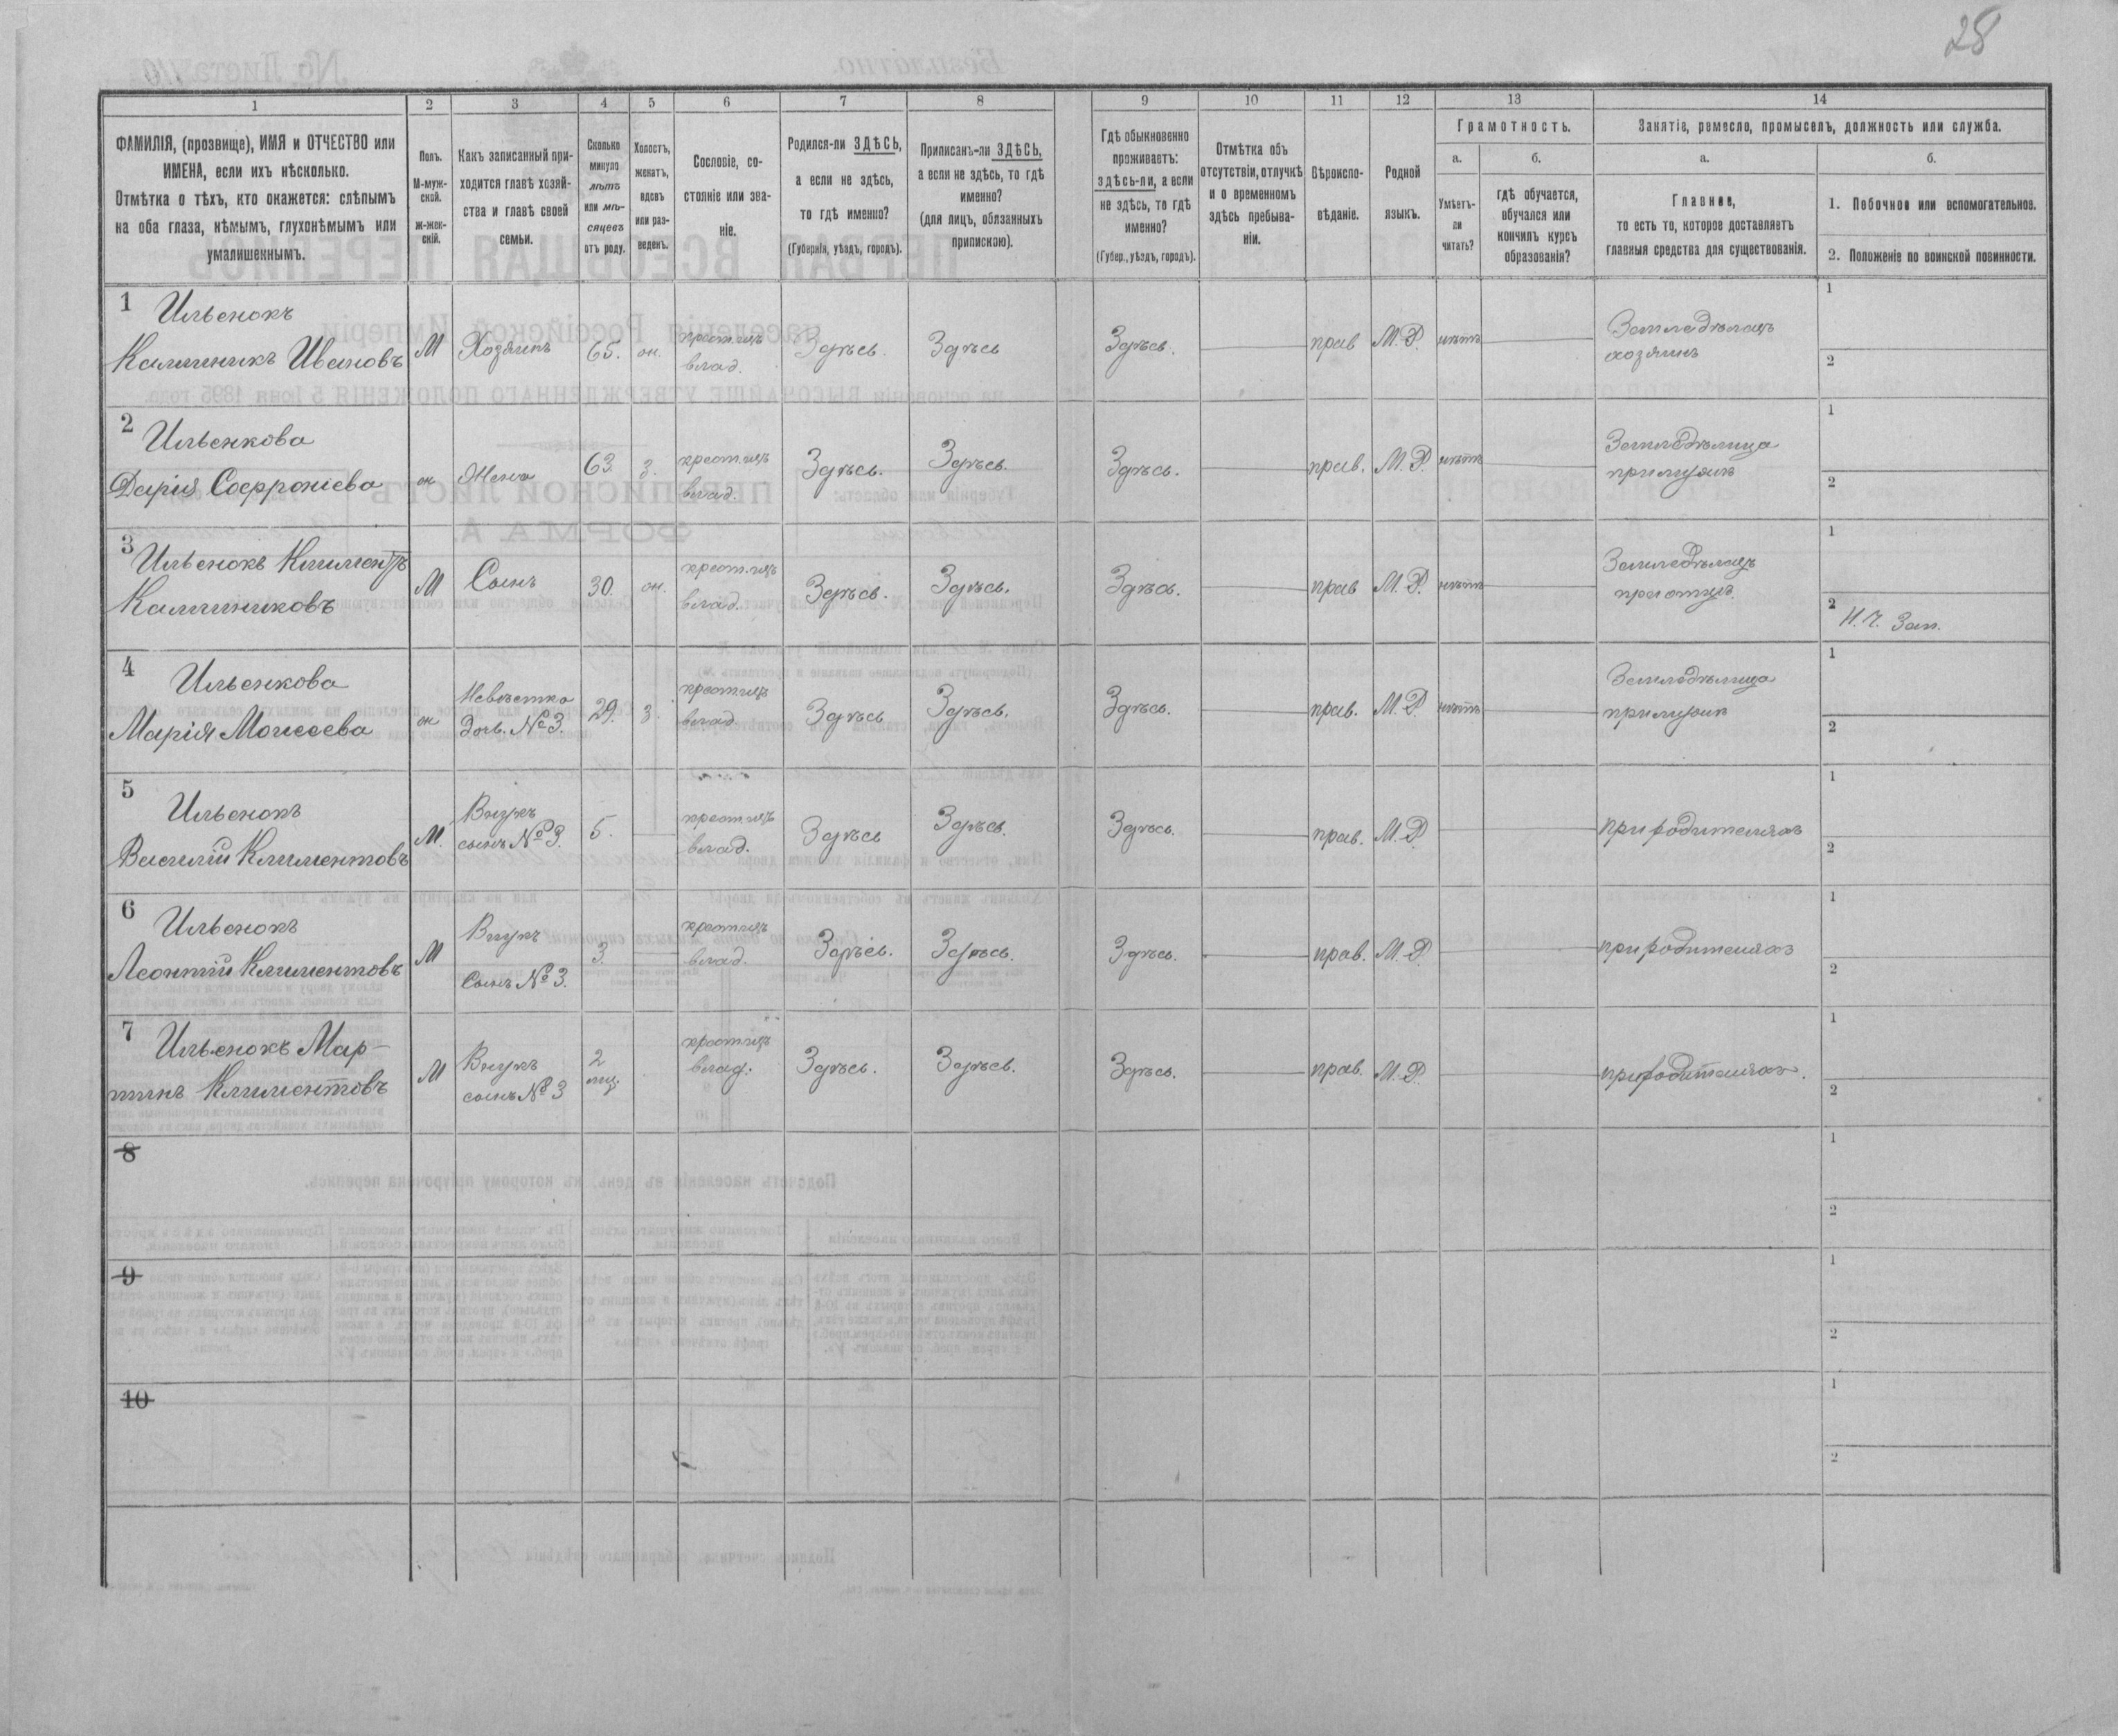 28
1 2 3 4 5 6 7 8 9 10 11 12 13 14
ФАМИЛІЯ, (прозвище), ИМЯ и ОТЧЕСТВО или
ИМЕНА, если ихъ нѣсколько.
Отмѣтка о тѣхъ, кто окажется: слѣпымъ
на оба глаза, нѣмымъ, глухонѣмымъ или
умалишеннымъ.
Полъ.
М-муж-
ской.
ж-жен-
скій.
Какъ записанный при-
ходится главѣ хозяй-
ства и главѣ своей
семьи.
Сколько
минуло
лѣтъ
или мѣ-
сяцевъ
отъ роду.
Холостъ,
женатъ,
вдовъ
или раз-
веденъ.
Сословіе, со-
стояніе или зва-
ніе.
Родился-ли ЗДѢСЬ,
а если не здѣсь,
то гдѣ именно?
(Губернія, уѣздъ, городъ).
Приписанъ-ли ЗДѢСЬ,
а если не здѣсь, то гдѣ
именно?
(для лицъ, обязанныхъ
припискою).
Гдѣ обыкновенно
проживаетъ:
здѣсь-ли, а если
не здѣсь, то гдѣ
именно?
(Губер., уѣздъ, городъ).
Отмѣтка объ
отсутствіи, отлучкѣ
и о временномъ
здѣсь пребыва-
ніи.
Вѣроиспо-
вѣданіе.
Родной
языкъ.
Грамотность.
а.
Умѣетъ-
ли
читать?
б.
гдѣ обучается,
обучался или
кончилъ курсъ
образованія?
Занятіе, ремесло, промыселъ, должность или служба.
а.
Главное,
то есть то, которое доставляетъ
главныя средства для существованія.
б.
1. Побочное или вспомогательное.
2. Положеніе по воинской повинности.
1 Ильенокъ
Калиникъ Ивановъ М Хозяинъ 65. ж. крест. изъ влад. Здѣсь. Здѣсь Здѣсь. прав М.Р. нѣтъ Земледѣлецъ хозяинъ 1 2
2 Ильенкова
Дарія Софроніева ж Жена 63 з. крест. изъ влад. Здѣсь. Здѣсь. Здѣсь. прав. М.Р. нѣтъ Земледѣлица при мужѣ 1 2
3 Ильенокъ Климентъ
Калиниковъ М Сынъ 30. ж. крест. изъ влад. Здѣсь. Здѣсь. Здѣсь. прав М.Р. нѣтъ Земледѣлецъ при отцѣ. 1 2 Н.Ч. Зап.
4 Ильенкова
Марія Моисеева ж Невѣстка 29. з. крест. изъ влад. Здѣсь Здѣсь. Здѣсь. прав. М.Р. нѣтъ Земледѣлица при мужѣ 1 2
5 Ильенокъ
Василій Климентовъ М. Внукъ сынъ №3. 5. крест. изъ влад. Здѣсь Здѣсь. Здѣсь. прав. М.Р при родителяхъ 1 2
6 Ильенокъ
Леонтій Климентовъ М Внукъ Сынъ №3. 3. крест. изъ влад. Здѣсь. Здѣсь. Здѣсь. прав. М.Р. при родителяхъ 1 2
7 Ильенокъ Мар-
тинъ Климентовъ М Внукъ сынъ №3 2 мц. крест. изъ влад. Здѣсь. Здѣсь. Здѣсь. прав. М.Р. при родителяхъ. 1 2
8 1 2
9 1 2
10 1 2